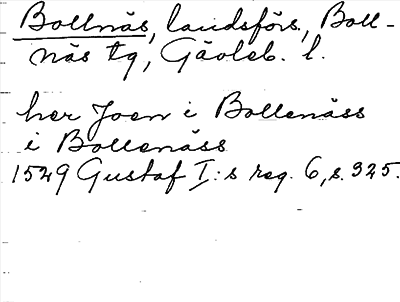 Bollnäs, landsförs., Boll-
näs tg, Gävleb. l.
her Joen i Bollenäss
i Bollenäss
1529 Gustaf I:s reg. 6, s. 325.